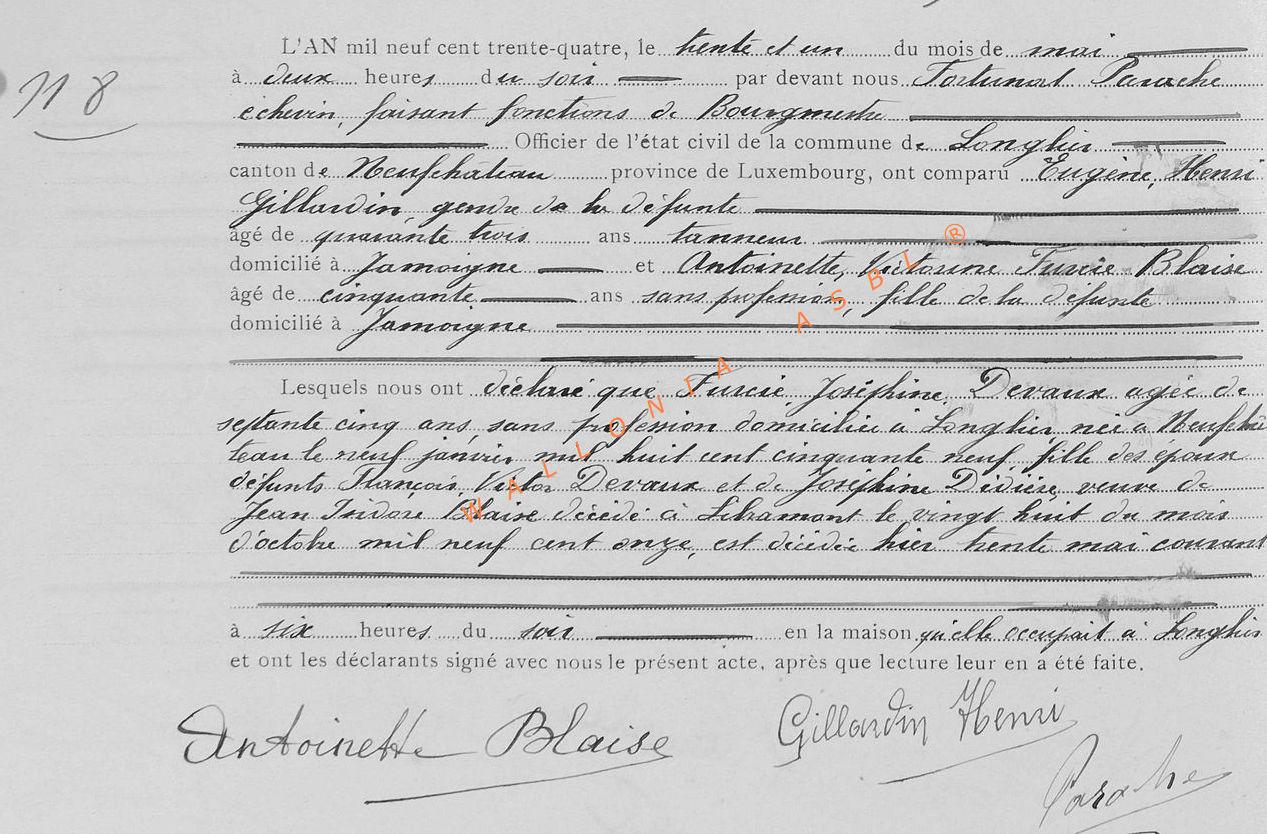 L'AN mil neuf cent trente-quatre, le trente et un du mois de mai
N 8
à deux heures du soir par devant nous Fortunat Parache
échevin, faisant fonctions de Bourgmestre
Officier de l'état civil de la commune de Longlier
canton de Neufchâteau province de Luxembourg, ont comparu Eugène, Henri
Gillardin, gendre de la défunte
âgé de quarante trois ans tanneur
domicilié à Jamoigne et Antoinette, Victorine Furcie Blaise
âgé de cinquante ans sans profession, fille de la défunte
domicilié à Jamoigne
Lesquels nous ont déclaré que Furcie, Joséphine, Devaux agée de
septante cinq ans, sans profession domiciliée à Longlier, née à Neufchâ
teau le neuf janvier mil huit cent cinquante neuf, fille des époux
défunts François, Victor Devaux et de Joséphine Didière, veuve de
Jean Isidore Blaise décédé à Libramont le vingt huit du mois
d'octobre mil neuf cent onze, est décédée hier trente mai courant
à six heures du soir en la maison qu'elle occupait à Longlier
et ont les déclarants signé avec nous le présent acte, après que lecture leur en a été faite.
Antoinette Blaise
Gillardin Henri
Parache
WALLONIA ASBL ®